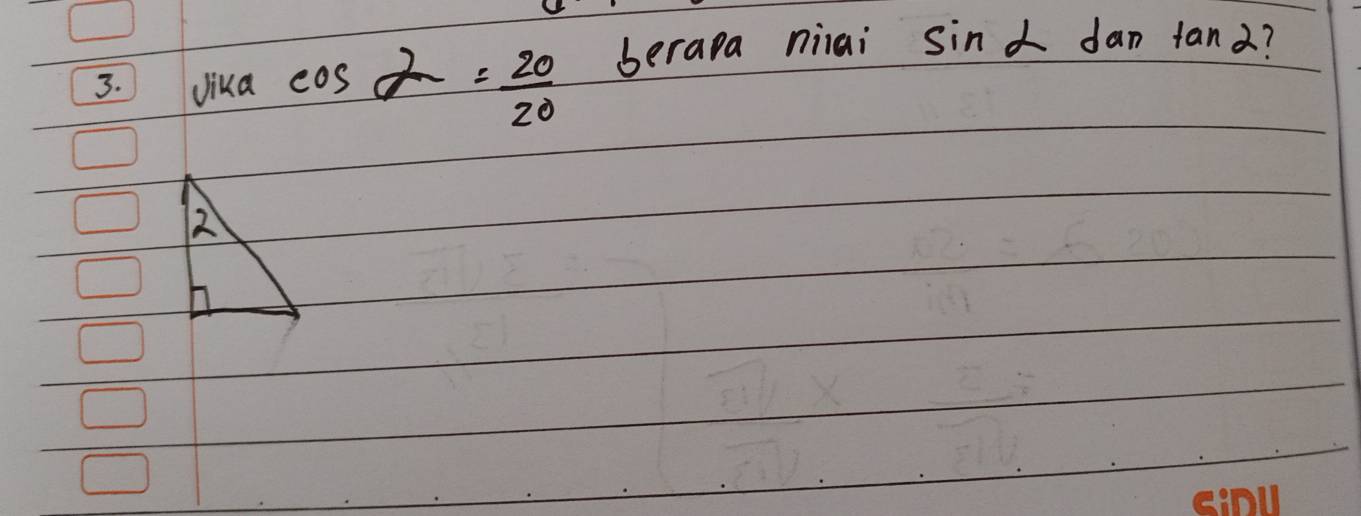 3. Jika cos α = 20/20 berapa nilai sin α dan tan α?
α
SiDU